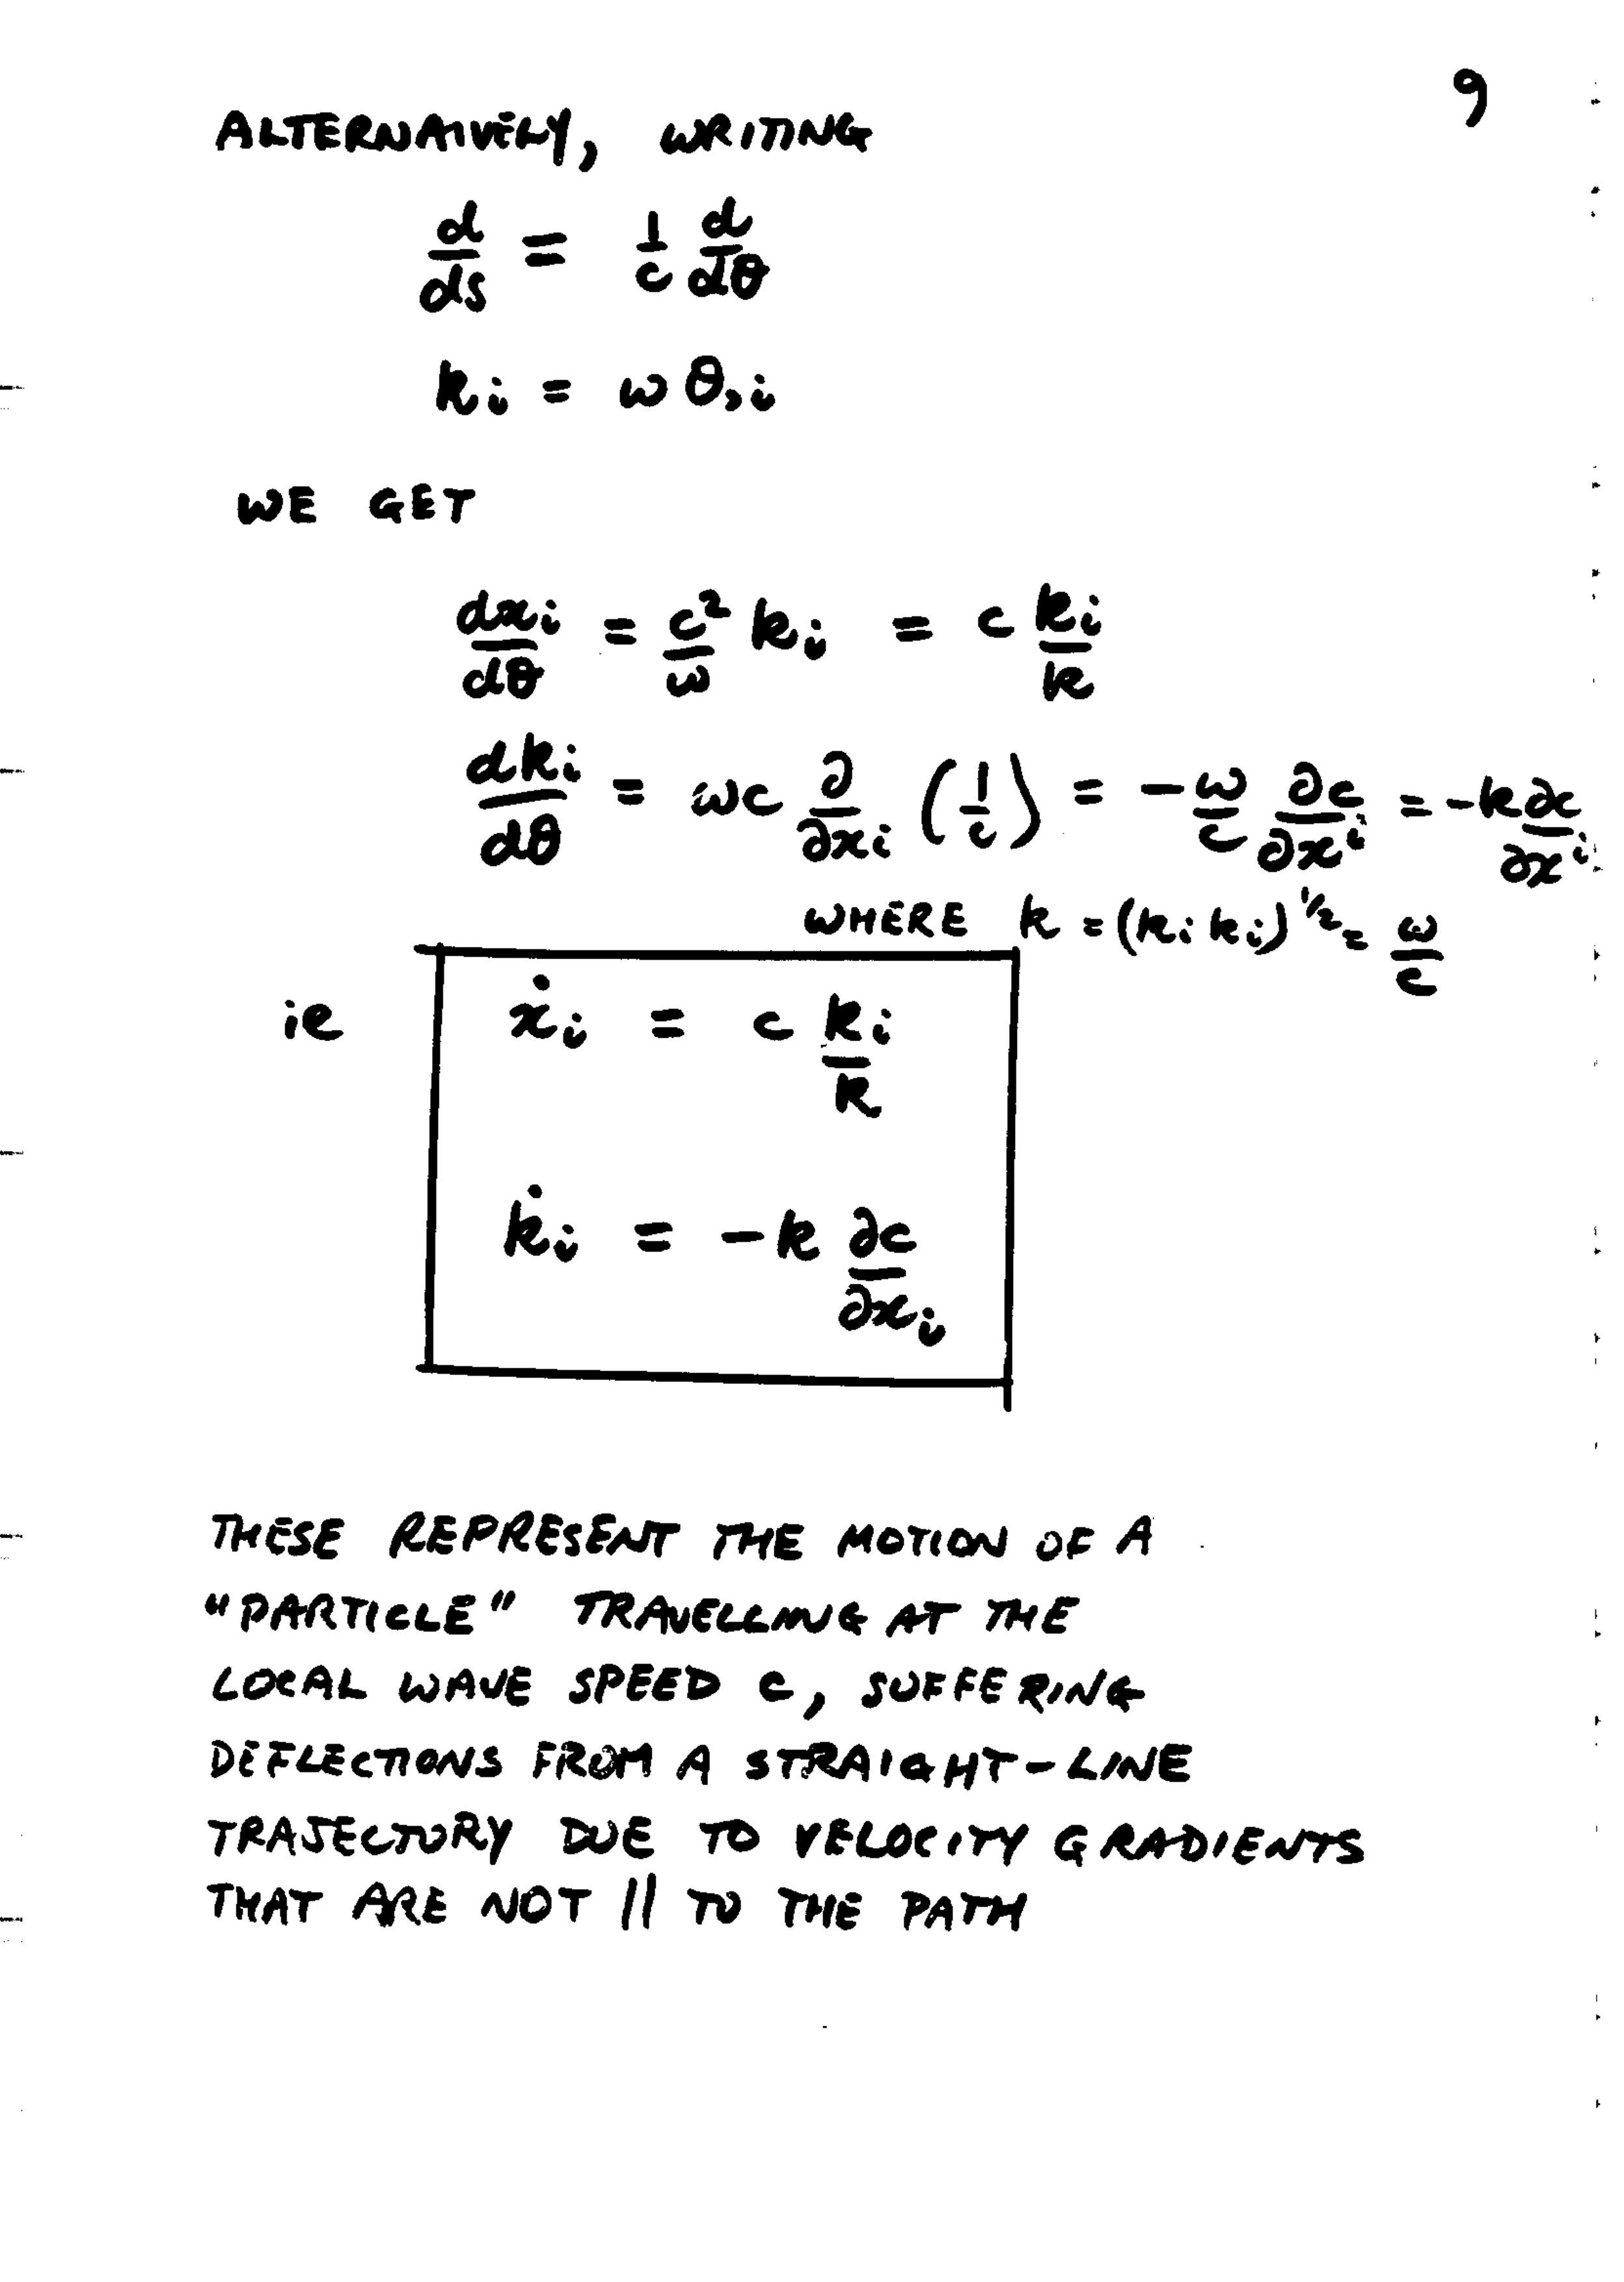 9
ALTERNAIVELY, WRITING
d/ds = 1/c d/dθ
kᵢ = ω θ,ᵢ
WE GET
dxᵢ/dθ = c²/ω kᵢ = c kᵢ/k
dkᵢ/dθ = ωc ∂/∂xᵢ (1/c) = -ω/c ∂c/∂xⁱ = -k ∂c/∂xⁱ
WHERE k = (kᵢ kᵢ)^1/2 = ω/c
ie ẋᵢ = c kᵢ/k
k̇ᵢ = -k ∂c/∂xᵢ
THESE REPRESENT THE MOTION OF A
"PARTICLE" TRAVELLING AT THE
LOCAL WAVE SPEED c, SUFFERING
DEFLECTIONS FROM A STRAIGHT-LINE
TRAJECTORY DUE TO VELOCITY GRADIENTS
THAT ARE NOT || TO THE PATH